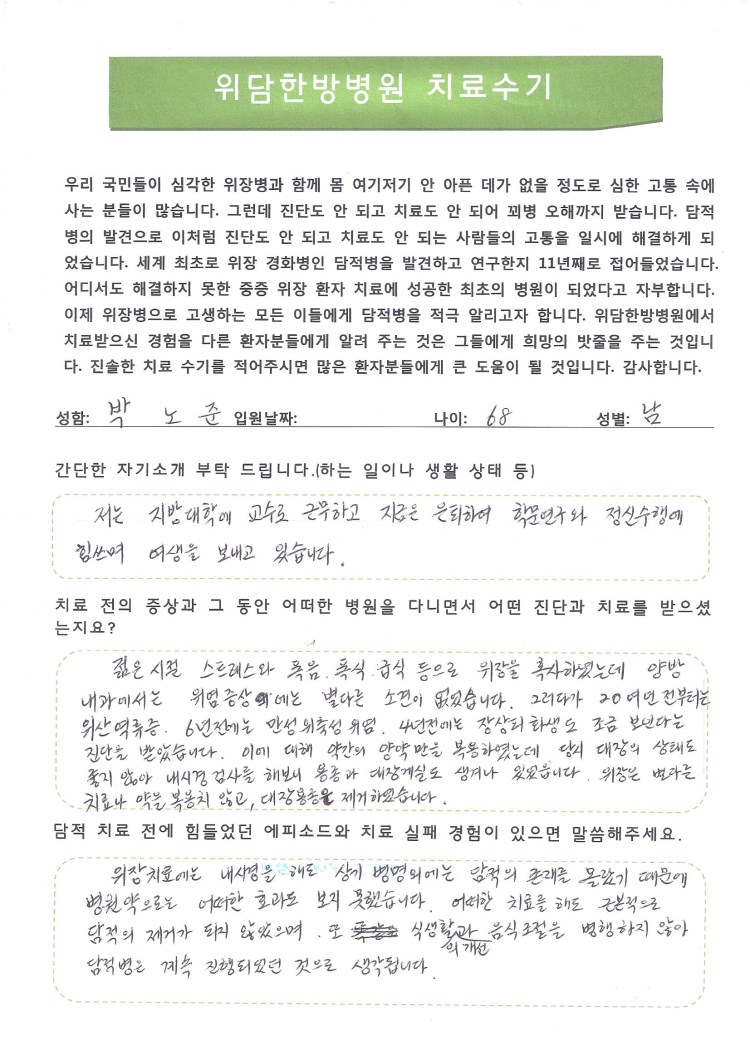 위담한방병원 치료수기
우리 국민들이 심각한 위장병과 함께 몸 여기저기 안 아픈 데가 없을 정도로 심한 고통 속에
사는 분들이 많습니다. 그런데 진단도 안 되고 치료도 안 되어 꾀병 오해까지 받습니다. 담적
병의 발견으로 이처럼 진단도 안 되고 치료도 안 되는 사람들의 고통을 일시에 해결하게 되
었습니다. 세계 최초로 위장 경화병인 담적병을 발견하고 연구한지 11년째로 접어들었습니다.
어디서도 해결하지 못한 중증 위장 환자 치료에 성공한 최초의 병원이 되었다고 자부합니다.
이제 위장병으로 고생하는 모든 이들에게 담적병을 적극 알리고자 합니다. 위담한방병원에서
치료받으신 경험을 다른 환자분들에게 알려 주는 것은 그들에게 희망의 밧줄을 주는 것입니
다. 진솔한 치료 수기를 적어주시면 많은 환자분들에게 큰 도움이 될 것입니다. 감사합니다.
성함: 박 노 준 입원날짜: 나이: 68 성별: 남
간단한 자기소개 부탁 드립니다.(하는 일이나 생활 상태 등)
저는 지방대학에 교수로 근무하고 지금은 은퇴하여 학문연구와 정신수행에
힘쓰며 여생을 보내고 있습니다.
치료 전의 증상과 그 동안 어떠한 병원을 다니면서 어떤 진단과 치료를 받으셨
는지요?
젊은 시절 스트레스와 폭음. 폭식. 급식 등으로 위장을 혹사하였는데 양방
내과에서는 위염증상 외에는 별다른 소견이 없었습니다. 그러다가 20여년 전부터는
위산역류증. 6년전에는 만성위축성 위염. 4년전에는 장상피화생도 조금 보인다는
진단을 받았습니다. 이에 대해 약간의 양약만을 복용하였는데 당시 대장의 상태도
좋지 않아 내시경 검사를 해보니 용종과 대장게실도 생겨나 있었습니다. 위장은 별다른
치료나 약을 복용치 않고, 대장용종을 제거하였습니다.
담적 치료 전에 힘들었던 에피소드와 치료 실패 경험이 있으면 말씀해주세요.
위장치료에는 내시경을 해도 상기 병명외에는 담적의 존재를 몰랐기 때문에
병원약으로는 어떠한 효과도 보지 못했습니다. 어떠한 치료를 해도 근본적으로
담적의 제거가 되지 않았으며. 또 식생활의 개선과 음식조절을 병행하지 않아
담적병은 계속 진행되었던 것으로 생각됩니다.